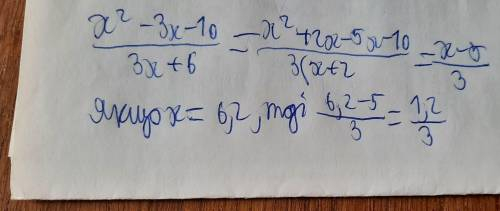 x² - 3x - 10 / 3x + 6 = x² + 2x - 5x - 10 / 3(x + 2 = x - 5 / 3
Якщо x = 6,2, тоді 6,2 - 5 / 3 = 1,2 / 3